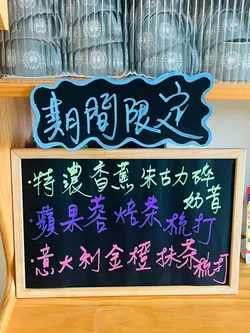 期間限定
特濃香蕉朱古力碎
奶昔
蘋果蓉焙茶梳打
意大利金橙抹茶梳打